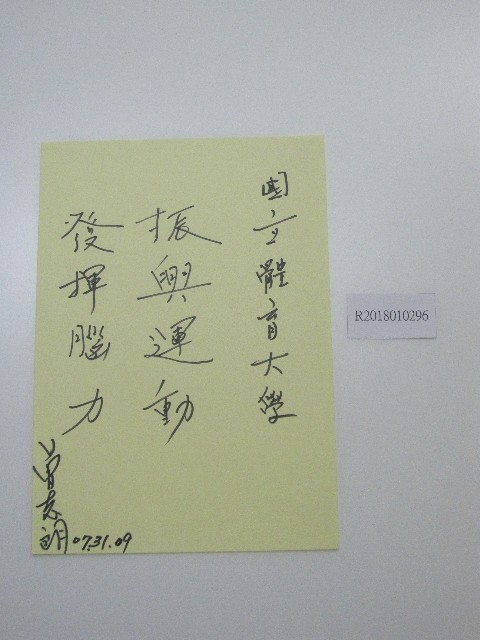 國立體育大學
振興運動
發揮腦力
曾志朗
07.31.09
R2018010296